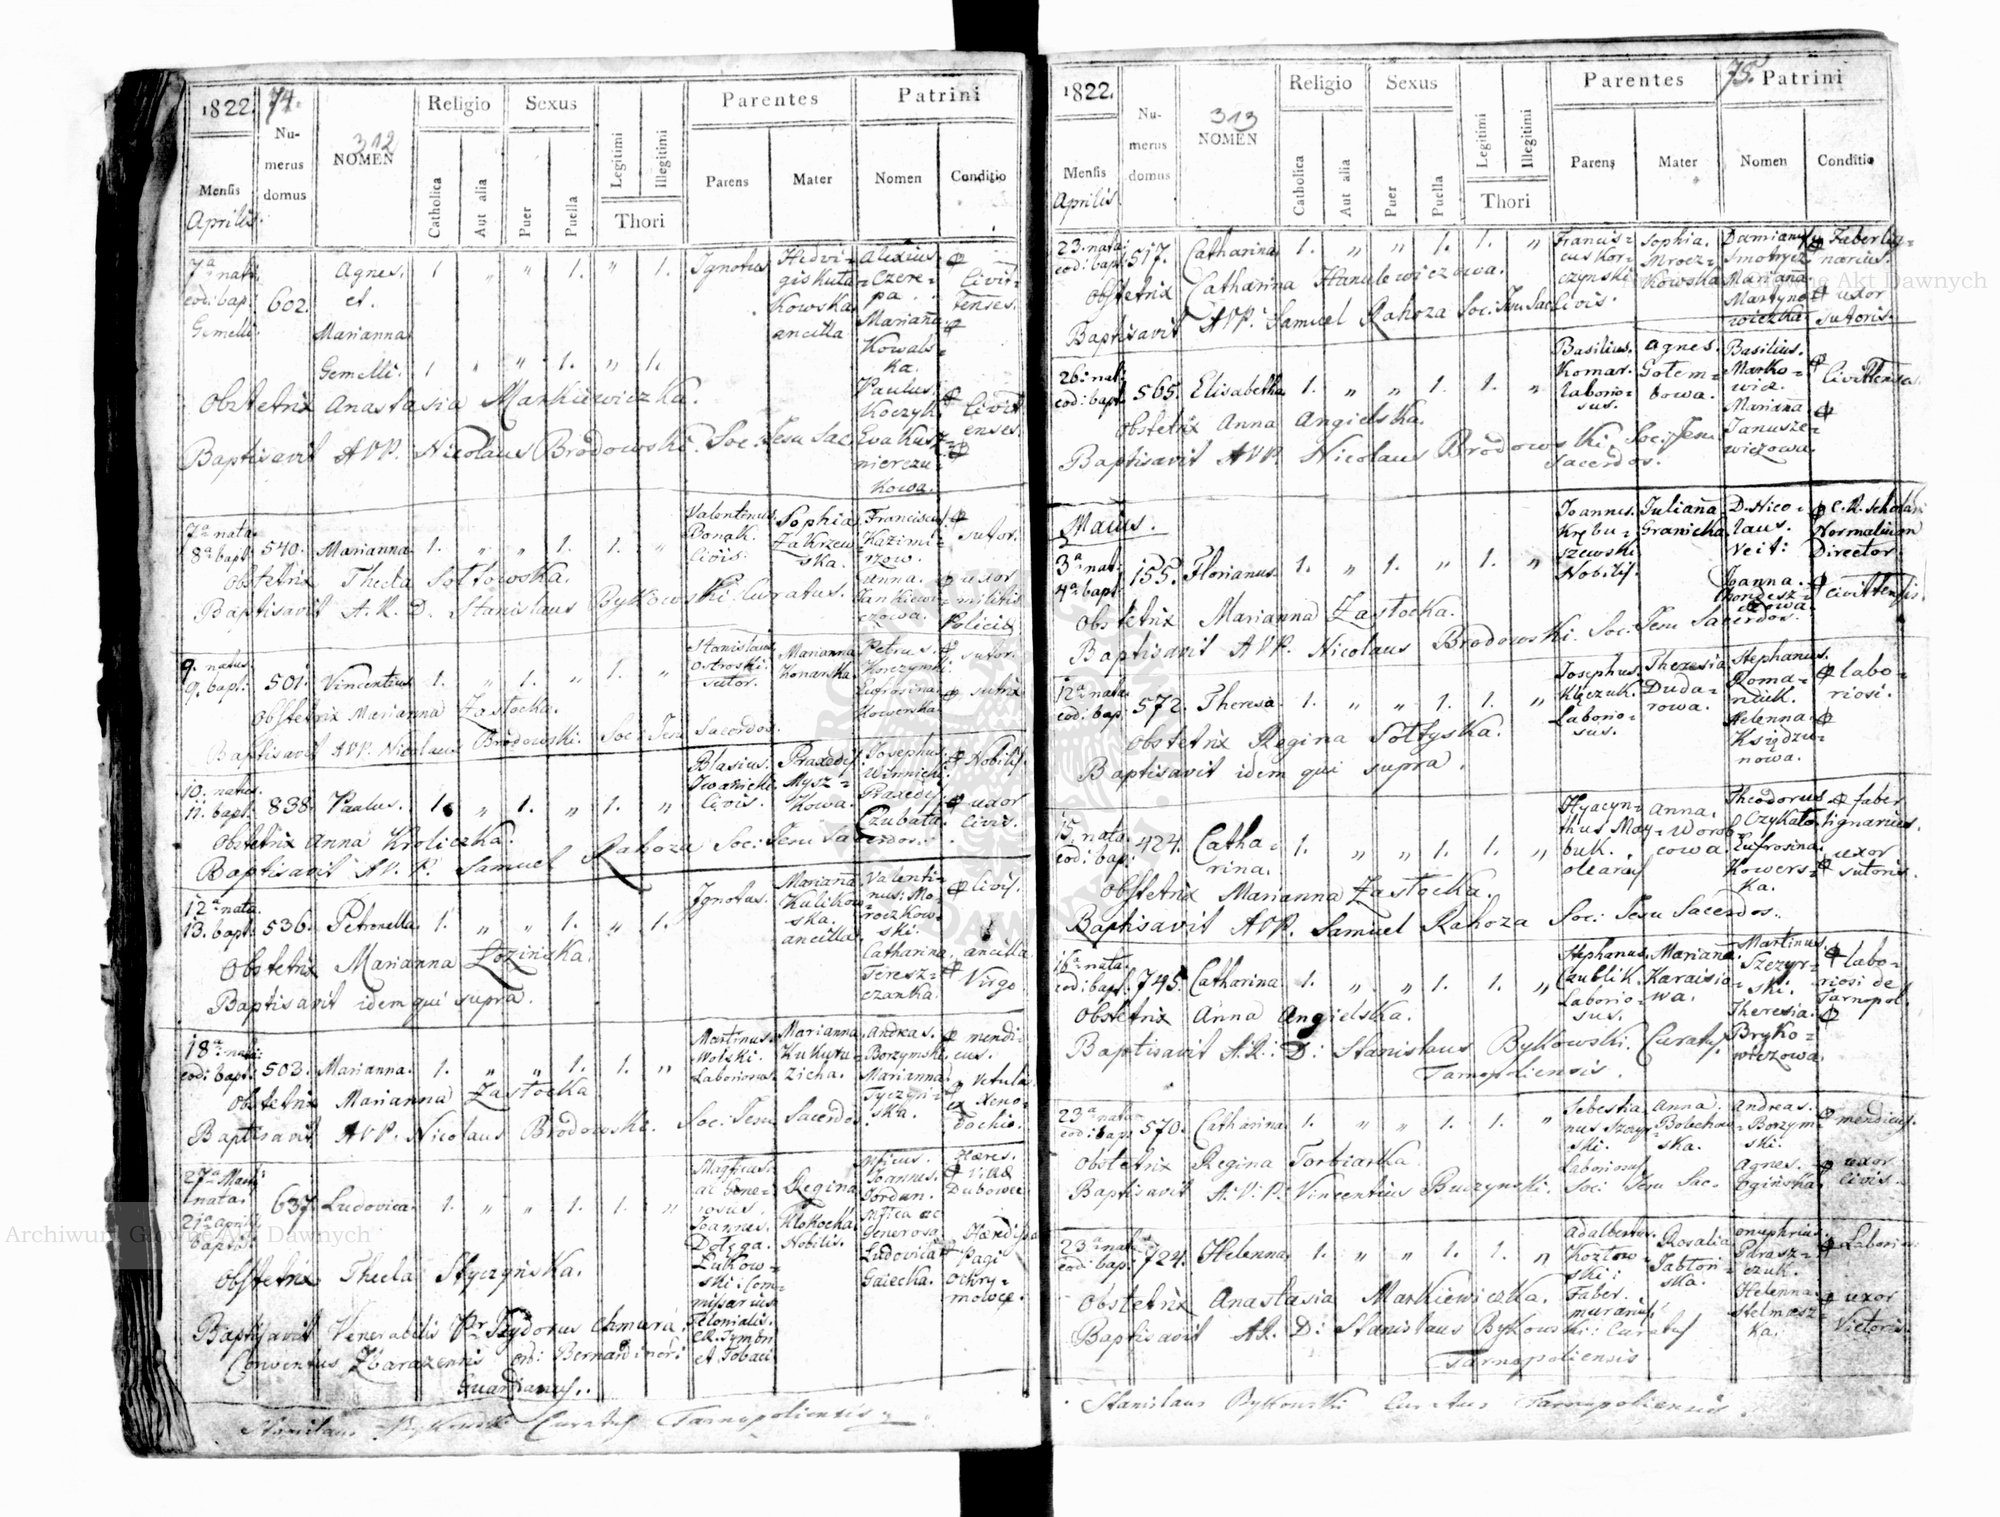 1822. 74.
Numerus domus
312
NOMEN
Religio
Sexus
Legitimi
Illegitimi
Thori
Parentes
Patrini
Mensis
Aprilis.
Catholica
Aut alia
Puer
Puella
Parens
Mater
Nomen
Conditio
7ª nata
eod: bapt:
Gemelli
602.
Agnes.
et.
Marianna
Gemelli.
1 " " 1. " 1.
1 " " 1. " 1.
Ignotus
Hedvi=
gis Kuta=
Kowska
ancilla
Alexius
Czere=
pa.
Marianna
Kowals=
ka.
Paulus
Koczyk
Eva Kusz=
nierczu=
kowa.
Civit=
tenses.
Civit
enses.
Obstetrix Anastasia Markiewiczka.
Baptisavit AVP. Nicolaus Brodowski. Soc: Jesu Sac
7ª nata
8ª bapt:
540.
Marianna
1. " " 1. 1. "
Valentinus
Bonak.
Civis.
Sophia
Zakrzew=
ska.
Franciscus
Kazimi=
rzow.
Anna.
Jankiewi=
czowa.
sutor.
uxor
militis
Policiae
Obstetrix Thecla Sottowska.
Baptisavit A. R. D. Stanislaus Bykowski. Curatus.
9. natus.
9. bapt:
501.
Vincentius
1. " 1. " 1. "
Stanislaus
Ostroski.
Sutor.
Marianna
Konarska
Petrus.
Korczynski
Eufrosina
Kowerska
sutor.
sutrix
Obstetrix Marianna Zastocka.
Baptisavit AVP. Nicolaus Brodowski. Soc: Jesu Sacerdos.
10. natus.
11. bapt:
838.
Paulus.
1. " 1. " 1. "
Blasius.
Iwanicki
Civis.
Praxedis
Mysz=
kowa.
Josephus
Winnicki
Praxedis
Czubata.
Nobilis.
uxor
civis.
Obstetrix Anna Kroliczka.
Baptisavit A.V.P. Samuel Rahoza Soc: Jesu Sacerdos.
12ª nata.
13. bapt:
536.
Petronella
1. " " 1. " 1.
Ignotus.
Marianna
Kulikow=
ska.
ancilla
Valenti=
nus: Mo=
roczkow=
ski:
Catharina
Teresz=
czanka.
Civis.
ancilla
Virgo.
Obstetrix Marianna Łozinska.
Baptisavit idem qui supra.
18ª nata:
eod: bapt:
503.
Marianna.
1. " " 1. 1. "
Martinus
Wolski.
Laboriosus.
Marianna
Kukuru=
zicha.
Andreas.
Borzymski
Marianna
Tyczyn=
ska.
mendi=
cus.
Vetula
ex Xeno=
dochio.
Obstetrix Marianna Zastocka
Baptisavit AVP. Nicolaus Brodowski. Soc: Jesu Sacerdos
27ª Martii
nata.
21ª Aprilis
baptis.
637.
Ludovica.
1. " " 1. 1. "
Magficus.
ac Gene=
rosus.
Joannes.
Dołęga.
Łukow=
ski: Com=
missarius
et Tabaci
Regina
Klokocka
Nobilis.
Mficus.
Joannes.
Jordan.
Mfica ac
Generosa
Ludovica
Gaiecka.
Haeres.
Villae
Dubowce
Pagi
Ochry=
mowce.
Obstetrix Thecla Styczyńska.
Baptisavit Venerabilis Pr Izydorus Chmura.
Conventus Zbarazensis ord: Bernardinori
Guardianus.
Stanislaus Bykowski Curatus Tarnopoliensis
1822.
Numerus domus
313
NOMEN
Religio
Sexus
Legitimi
Illegitimi
Thori
Parentes
75. Patrini
Mensis
Aprilis.
Catholica
Aut alia
Puer
Puella
Parens
Mater
Nomen
Conditio
23. nata:
eod: bapt:
517.
Catharina
1. " " 1. 1. "
Francis=
cus Kor=
czynski
Civis.
Sophia.
Mrocz=
kowska
Damianus
Smotrycz
Marianna
Martyno=
wiczka
Faber lig=
narius.
uxor
sutoris.
Obstetrix Catharina Hanulewiczowa.
Baptisavit AVP. Samuel Rahoza Soc: Jesu Sac
26: nat:
eod: bapt:
565.
Elisabetha
1. " " 1. 1. "
Basilius.
Komar.
Laborio=
sus.
Agnes.
Gotem=
bowa.
Basilius.
Marko=
wicz.
Marianna
Janusze=
wiczowa.
Civittenses.
Obstetrix Anna Angielska.
Baptisavit AVP. Nicolaus Brodowski. Soc: Jesu
Sacerdos.
Maius.
3ª nat.
4ª bapt:
155.
Florianus.
1. " 1. " 1. "
Joannes.
Krębu=
szewski
Nobilis.
Julianna
Granicka
D. Nico=
laus.
Veit:
Joanna.
C. R. Schola
Normalium
Director.
civittensis.
Obstetrix Marianna Zastocka.
Baptisavit AVP. Nicolaus Brodowski. Soc: Jesu Sacerdos.
12ª nata
eod: bap:
572.
Theresa
1. " " 1. 1. "
Josephus.
Laborio=
sus.
Theresia
Duda=
rowa.
Stephanus.
Roma=
niuk.
Helenna
Księdzu=
nowa.
labo=
riosi.
Obstetrix Regina Sottyska.
Baptisavit idem qui supra.
15. nata.
eod: bap:
424.
Catha=
rina.
1. " " 1. 1. "
Hyacyn=
thus May=
buk.
olearius
Anna.
Worob=
cowa.
Theodorus
Czykało
Eufrosina
Kowers=
ka.
faber
lignarius.
uxor
sutoris.
Obstetrix Marianna Zastocka.
Baptisavit AVP. Samuel Rahoza Soc: Jesu Sacerdos.
16ª nata
eod: bapt.
745.
Catharina
1. " " 1. 1. "
Stephanus
Caublik.
Laborio=
sus.
Marianna
Karaisio=
wa.
Martinus
Szczyr=
ski.
Theresia
Bryko=
wiczowa.
labo=
riosi de
Tarnopol
Obstetrix Anna Angielska.
Baptisavit A.R.: D: Stanislaus Bykowski. Curatus
Tarnopoliensis.
23ª nata
eod: bap:
570.
Catharina
1. " " 1. 1. "
Sebestia=
nus Szczyr=
ski.
Laboriosus
Anna.
Bolechow=
ska.
Andreas.
Borzym=
ski.
Agnes.
Ogińska.
mendicus.
uxor
civis.
Obstetrix Regina Torbiarka.
Baptisavit A. V. P. Vincentius Buczynski. Soc: Jesu Sac.
23ª nat
eod: bap:
724.
Helenna
1. " " 1. 1. "
Adalbertus.
Kozłow=
ski:
Faber
murarius
Rosalia
Jabłon=
ska.
Onuphrius.
Paraz=
czuk.
Helenna
Helmasz=
ka.
Labori
uxor
Vietoris.
Obstetrix Anastasia Markiewiczka.
Baptisavit AR. D: Stanislaus Bykowski: Curatus
Tarnopoliensis.
Stanislaus Bykowski Curatus Tarnopoliensis.
Archiwum Główne Akt Dawnych